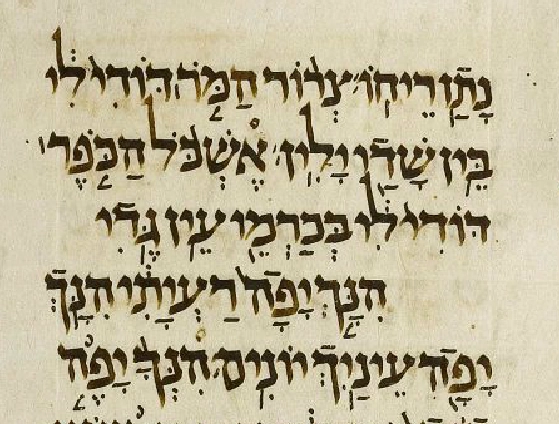 נָתַן רֵיחוֹ׃ צְרוֹר הַמֹּר דּוֹדִי לִי
בֵּין שָׁדַי יָלִין׃ אֶשְׁכֹּל הַכֹּפֶר
דּוֹדִי לִי בְּכַרְמֵי עֵין גֶּדִי
הִנָּךְ יָפָה רַעְיָתִי הִנָּךְ
יָפָה עֵינַיִךְ יוֹנִים׃ הִנְּךָ יָפֶה